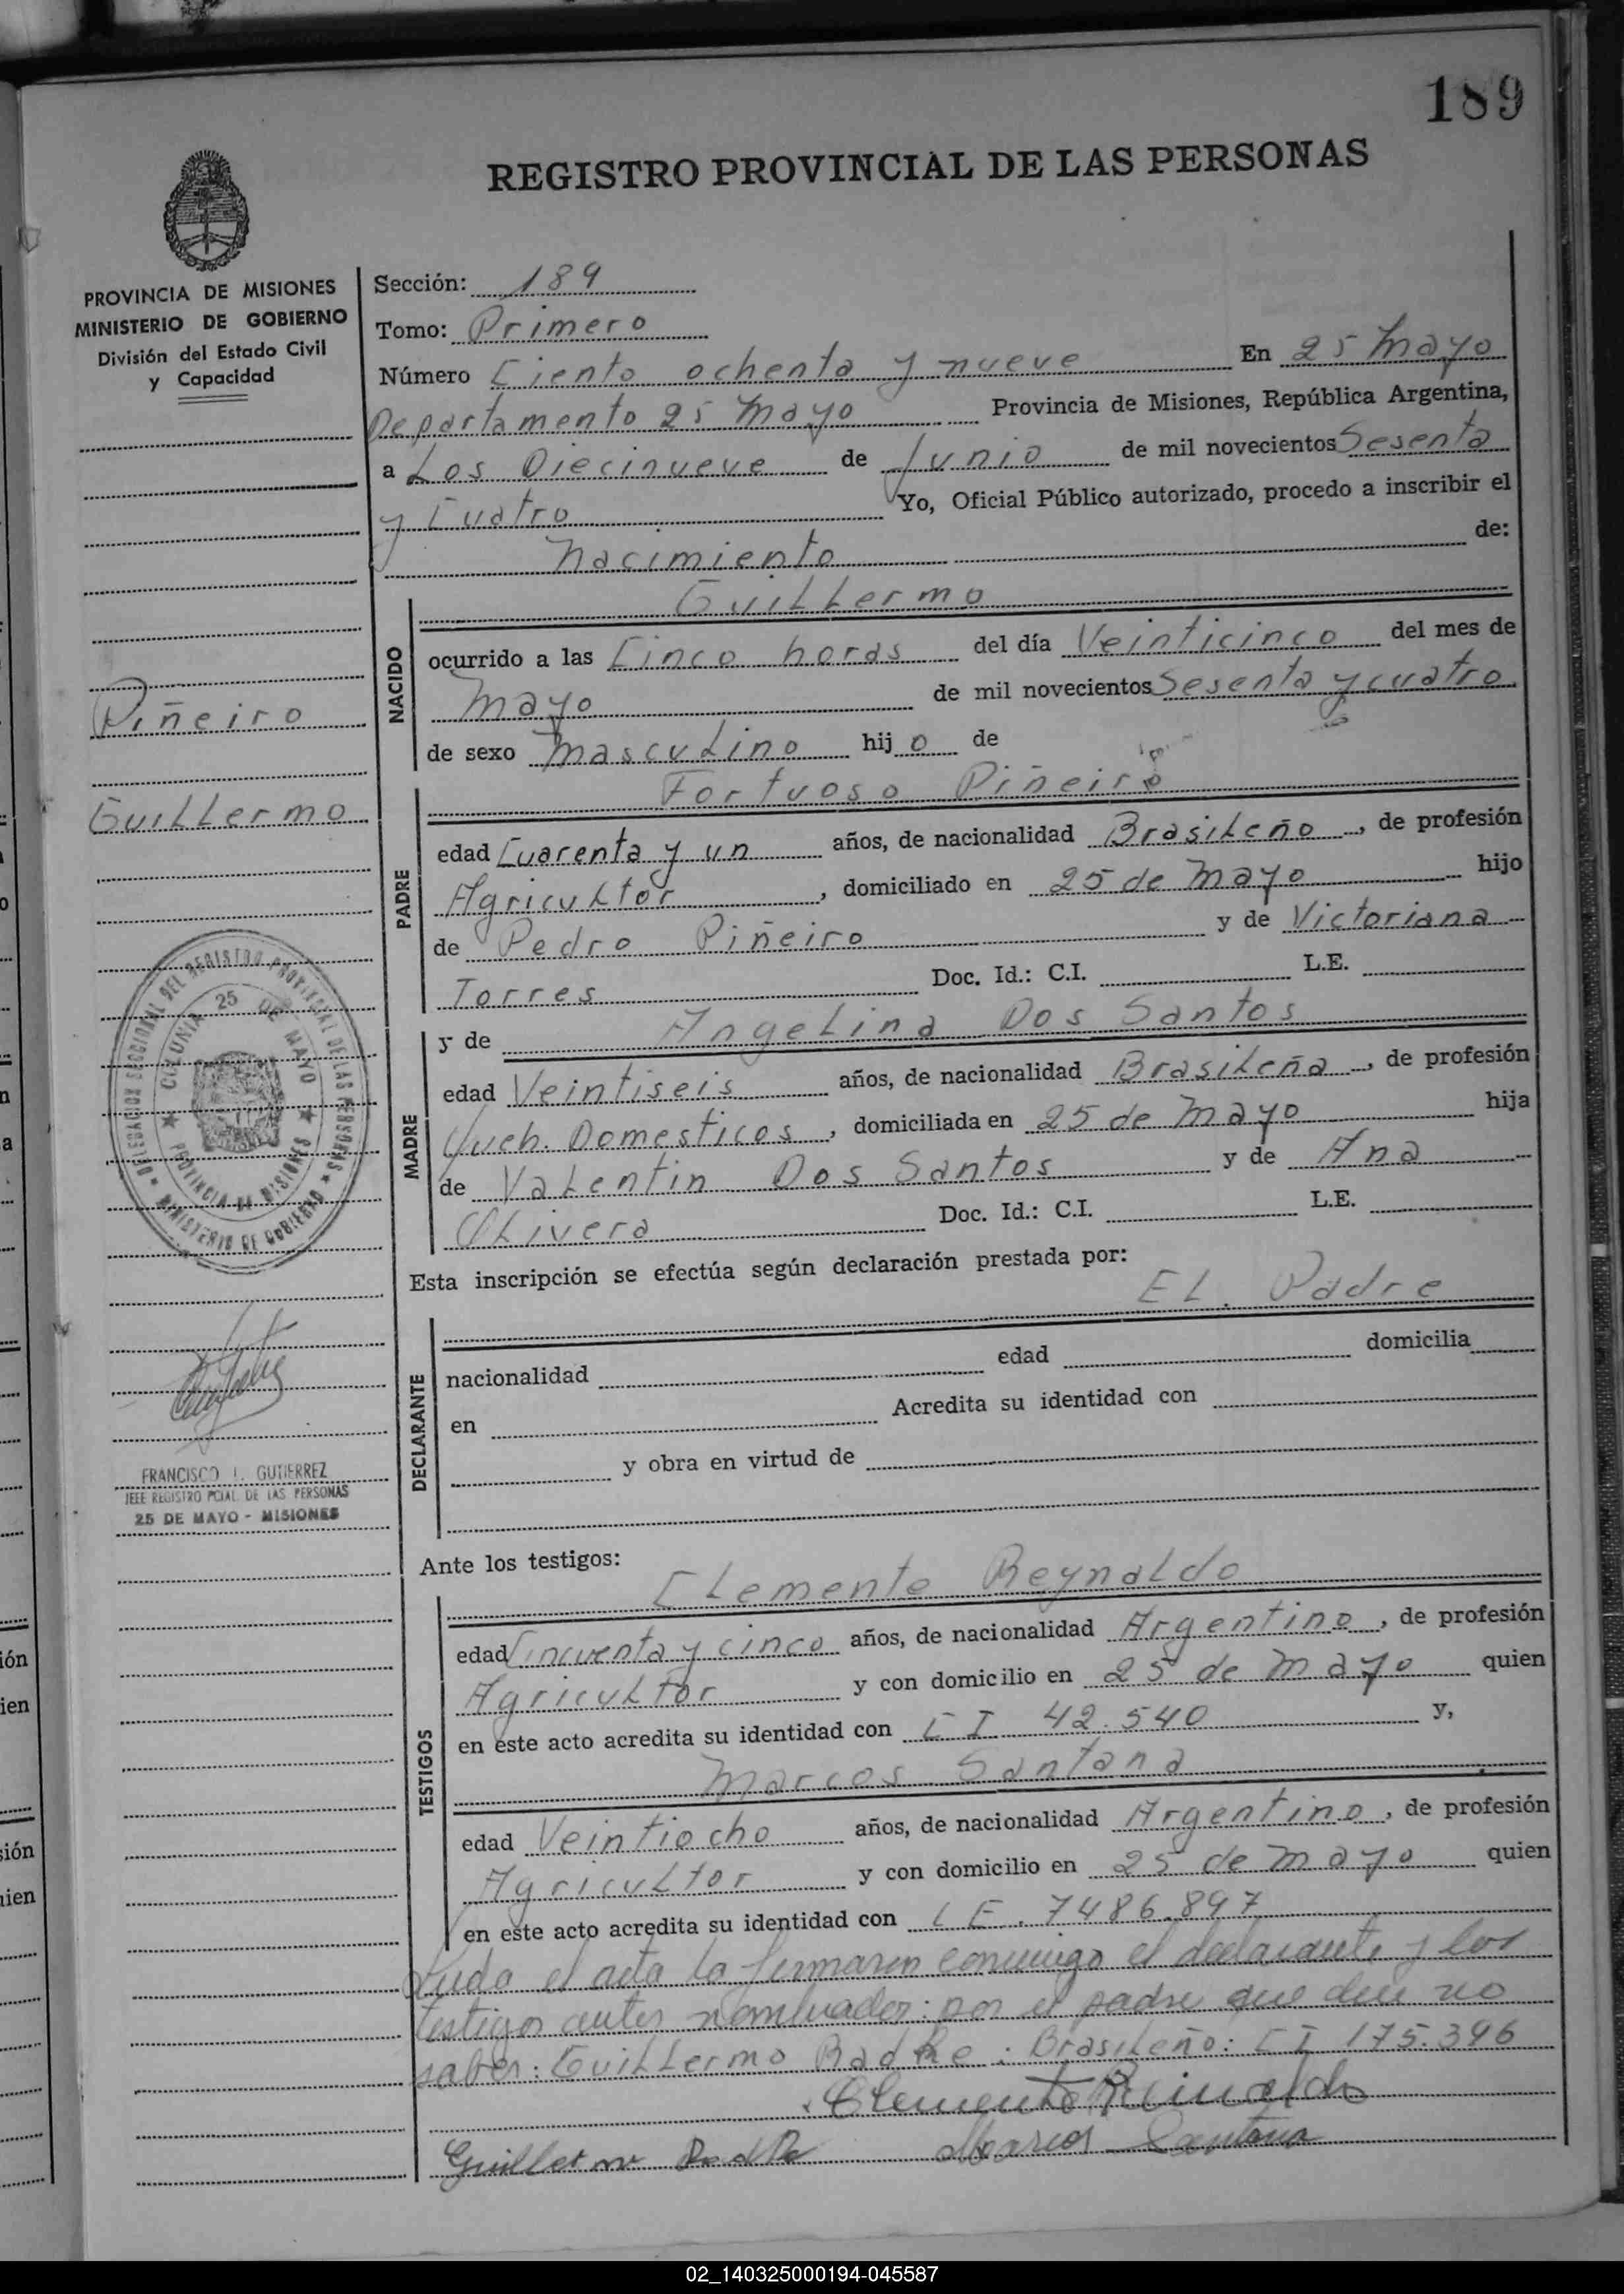 189
REGISTRO PROVINCIAL DE LAS PERSONAS
PROVINCIA DE MISIONES
MINISTERIO DE GOBIERNO
División del Estado Civil
y Capacidad
Piñeiro
Guillermo
DELEGACION SECCIONAL DEL REGISTRO PROVINCIAL DE LAS PERSONAS
MINISTERIO DE GOBIERNO
COLONIA 25 DE MAYO
PROVINCIA DE MISIONES
FRANCISCO I. GUTIERREZ
JEFE REGISTRO PCIAL. DE LAS PERSONAS
25 DE MAYO - MISIONES
Sección: 189
Tomo: Primero
Número Ciento ochenta y nueve En 25 Mayo
Departamento 25 Mayo Provincia de Misiones, República Argentina,
a Los Diecinueve de Junio de mil novecientos Sesenta
y Cuatro Yo, Oficial Público autorizado, procedo a inscribir el
Nacimiento de:
NACIDO
Guillermo
ocurrido a las Cinco horas del día Veinticinco del mes de
Mayo de mil novecientos Sesenta y cuatro
de sexo Masculino hijo de
PADRE
Fortuoso Piñeiro
edad Cuarenta y un años, de nacionalidad Brasileño, de profesión
Agricultor, domiciliado en 25 de Mayo hijo
de Pedro Piñeiro y de Victoriana
Torres Doc. Id.: C.I. L.E.
MADRE
y de Angelina Dos Santos
edad Veintiseis años, de nacionalidad Brasileña, de profesión
Queh. Domesticos, domiciliada en 25 de Mayo hija
de Valentin Dos Santos y de Ana
Olivera Doc. Id.: C.I. L.E.
Esta inscripción se efectúa según declaración prestada por:
EL Padre
DECLARANTE
nacionalidad edad domicilia
en Acredita su identidad con
y obra en virtud de
Ante los testigos:
TESTIGOS
Clemente Reynaldo
edad Cincuenta y cinco años, de nacionalidad Argentino, de profesión
Agricultor y con domicilio en 25 de Mayo quien
en este acto acredita su identidad con C I 42.540 y,
Marcos Santana
edad Veintiocho años, de nacionalidad Argentino, de profesión
Agricultor y con domicilio en 25 de Mayo quien
en este acto acredita su identidad con L E. 7486.897
Leida el acta la firmaron conmigo el declarante y los
testigos antes nombrados: por el padre que dice no
saber: Guillermo Radke: Brasileño: C I 175.396
Clemente Reinaldo
Guillermo Radke Marcos Santana
02_140325000194-045587